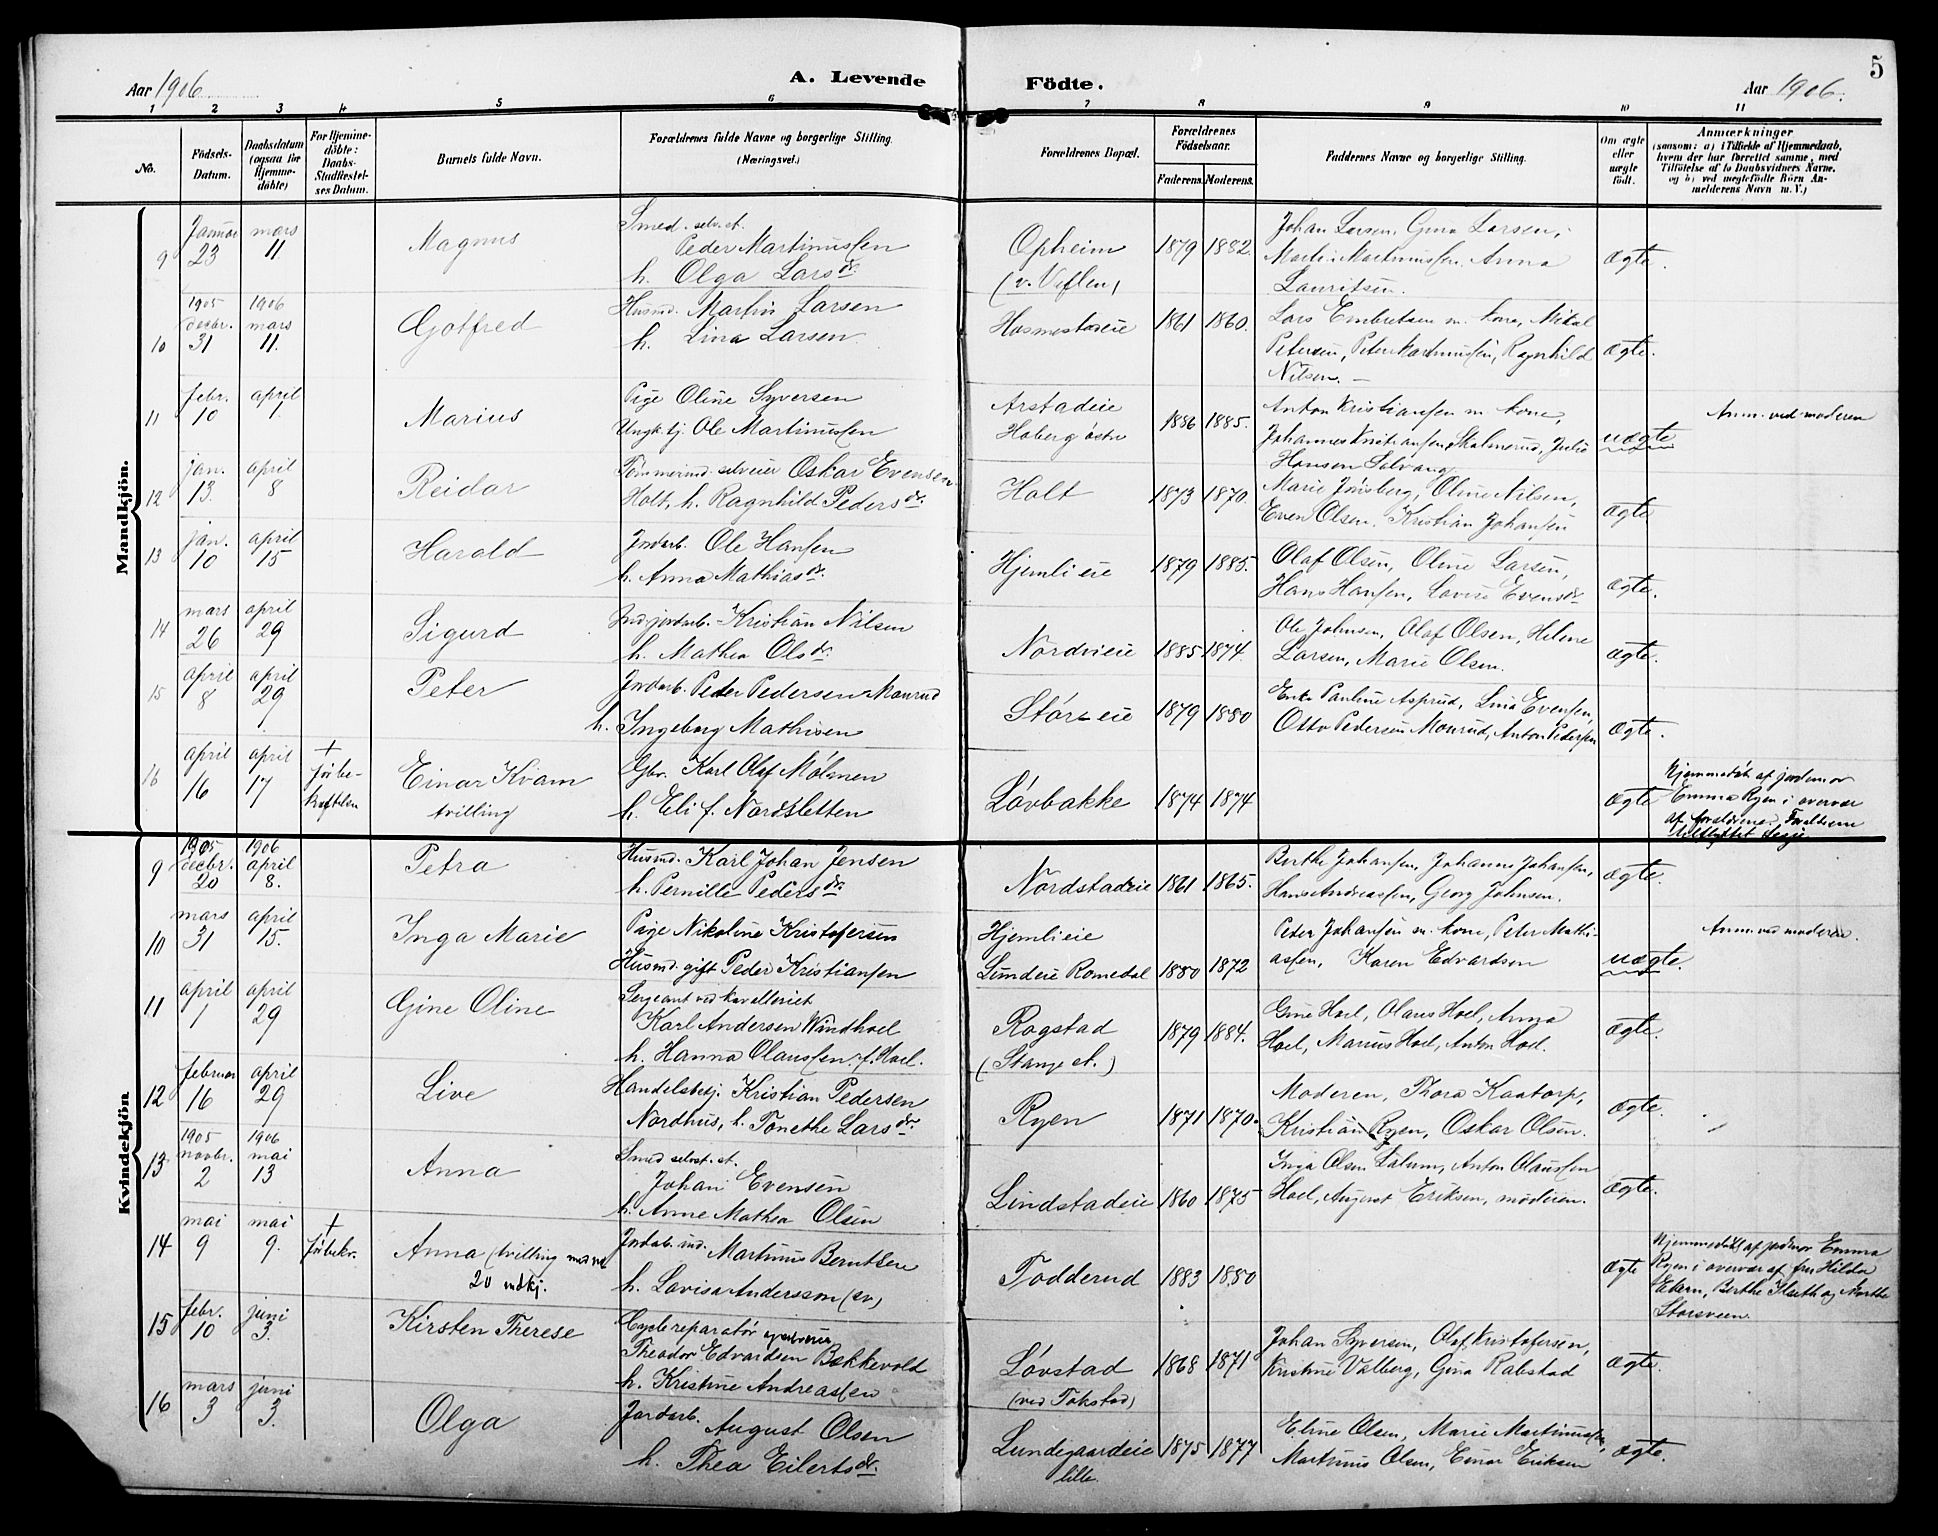 5
Aar 1906
A. Levende
Födte.
Aar 1906.
1 2 3 4 5 6 7 8 9 10 11
No.
Födsels-
Datum.
Daabsdatum
(ogsaa for
Hjemme-
döbte)
For Hjemme-
döbte:
Daabs-
Stadfæstel-
ses Datum.
Barnets fulde Navn.
Forældrenes fulde Navne og borgerlige Stilling.
(Næringsvei.)
Forældrenes Bopæl.
Forældrenes
Födselsaar.
Faderens.
Moderens.
Faddernes Navne og borgerlige Stilling.
Om ægte
eller
uægte
födt.
Anmærkninger
(saasom: a) i Tilfælde af Hjemmedaab,
hvem der har forrettet samme, med
Tilföielse af to Daabsvidners Navne.
og b) ved uægtefödte Börn An-
melderens Navn m. V.)
Mandkjön.
9
Januar
23
mars
11.
Magnus
Smed selv.st.
Peder Martinussen
h. Olga Larsdr.
Opheim
(v. Veflen)
1879
1882.
Johan Larsen, Gina Larsen,
Martin Martinussen, Anna
Lauritsen.
ægte.
10
1905
decbr.
31
1906
mars
11.
Gotfred
Husmd. Martin Larsen
h. Lina Larsen
Hosmestadeie
1861
1860.
Lars Embretsen m. kone, Mikal
Petersen, Peter Martinussen, Ragnhild
Nilsen. —
ægte.
11
febr.
10
april
1
Marius
Pige Oline Syversen
Ungk. tj. Ole Martinussen
Arstadeie
Hoberg østre
1886
1885.
Anton Kristiansen m. kone,
Johannes Kristiansen Skolmerud, Julie
Hansen Solvang
uægte
Anm. ved moderen
12
jan.
13.
april
8
Reidar
Tømmermd. selveier Oskar Evensen
Holt, h. Ragnhild Pedersdr.
Holt
1873
1870.
Marie Jønsberg, Oline Nilsen,
Even Olsen, Kristian Johansen
ægte
13
jan.
10
april
15
Harald
Jordarb. Ole Hansen
h. Anna Mathiasdr.
Hjemli eie
1879
1885.
Olaf Olsen, Oline Larsen,
Hans Hansen, Lovise Evensdr
ægte.
14
mars
26
april
29
Sigurd
Ind. jordarb. Kristian Nilsen
h. Mathea Olsdr.
Nordvieie
1885
1874.
Ole Johnsen, Olaf Olsen, Helene
Larsen, Marie Olsen.
ægte.
15
april
8
april
29
Peter
Jordarb. Peder Pedersen Monrud
h. Ingeborg Mathisen
Störseie
1879
1880
Enke Pauline Asprud, Lina Evensen,
Otto Pedersen Monrud, Anton Pedersen
ægte.
16
april
16
april
17
+
før be-
kræftelsen
Einar Kvam
tvilling
Gbr. Karl Olaf Mölmen
h. Eli f. Nordsletten
Løvbakke
1874
1874
ægte
Hjemmedøbt af jordemor
Emma Ryen i overvær
af forældrene.
Kvindekjön
9
1905
decbr.
20
1906
april
8.
Petra
Husmd. Karl Johan Jensen
h. Pernille Pedersdr.
Nordstadeie
1861
1865.
Berthe Johansen, Johanne Johansen,
Hans Andreassen, Georg Johnsen.
ægte.
10
mars
31
april
15.
Inga Marie
Pige Nikoline Kristofersen
Husmd. gift Peder Kristiansen
Hjemlieie
Lundeie Romedal
1880
1872
Peder Johansen m. kone, Peter Mathi-
assen, Karen Edvardsen
uægte.
Anm. ved moderen.
11
april
1
april
29
Gine Oline
Sergeant ved kavalleriet
Karl Andersen Windhoel
h. Hanna Olaussen f. Hoel.
Rogstad
(Stange st.)
1879
1884.
Gine Hoel, Olaus Hoel, Anna
Hoel, Marius Hoel, Anton Hoel.
ægte.
12
februar
16
april
29
Live
Handelsbetj. Kristian Pedersen
Nordhus, h. Tonethe Larsdr
Ryen
1871
1870.
Moderen, Thora Kaatorp,
Kristian Ryen, Oskar Olsen.
ægte.
13
1905
novbr.
2
1906
mai
13
Anna
Smed selvst.
Johan Evensen
h. Anne Mathea Olsen
Lindstadeie
1860
1875
Inga Olsen Lalum, Anton Olaussen
Hoel, August Eriksen, moderen.
ægte.
14
mai
9
mai
9.
+
før bekr.
Anna (tvilling med no
20 mdkj.
Jordarb. ind. Martinus Berntsen
h. Lovisa Andersson (sv)
Todderud
1883
1880
ægte
Hjemmedøbt af jordmor Emma
Ryen i overvær af fru Hilda
Ekern, Berthe Hseth og Marthe
Storsveen.
15
febr.
10
juni
3.
Kirsten Therese
Cyclereparatör
Theodor Edvardsen Bekkevold
h. Kristine Andreassen
Løvstad
(ved Tokstad)
1868
1871
Johan Syversen, Olaf Kristofersen,
Kristine Valberg, Gina Rabstad
ægte.
16
mars
3
juni
3.
Olga
Jordarb. August Olsen
h. Thea Eilertsdr.
Lundgaardeie
lille
1875
1877
Eline Olsen, Marie Martinussen,
Martinus Olsen, Einar Eriksen
ægte.